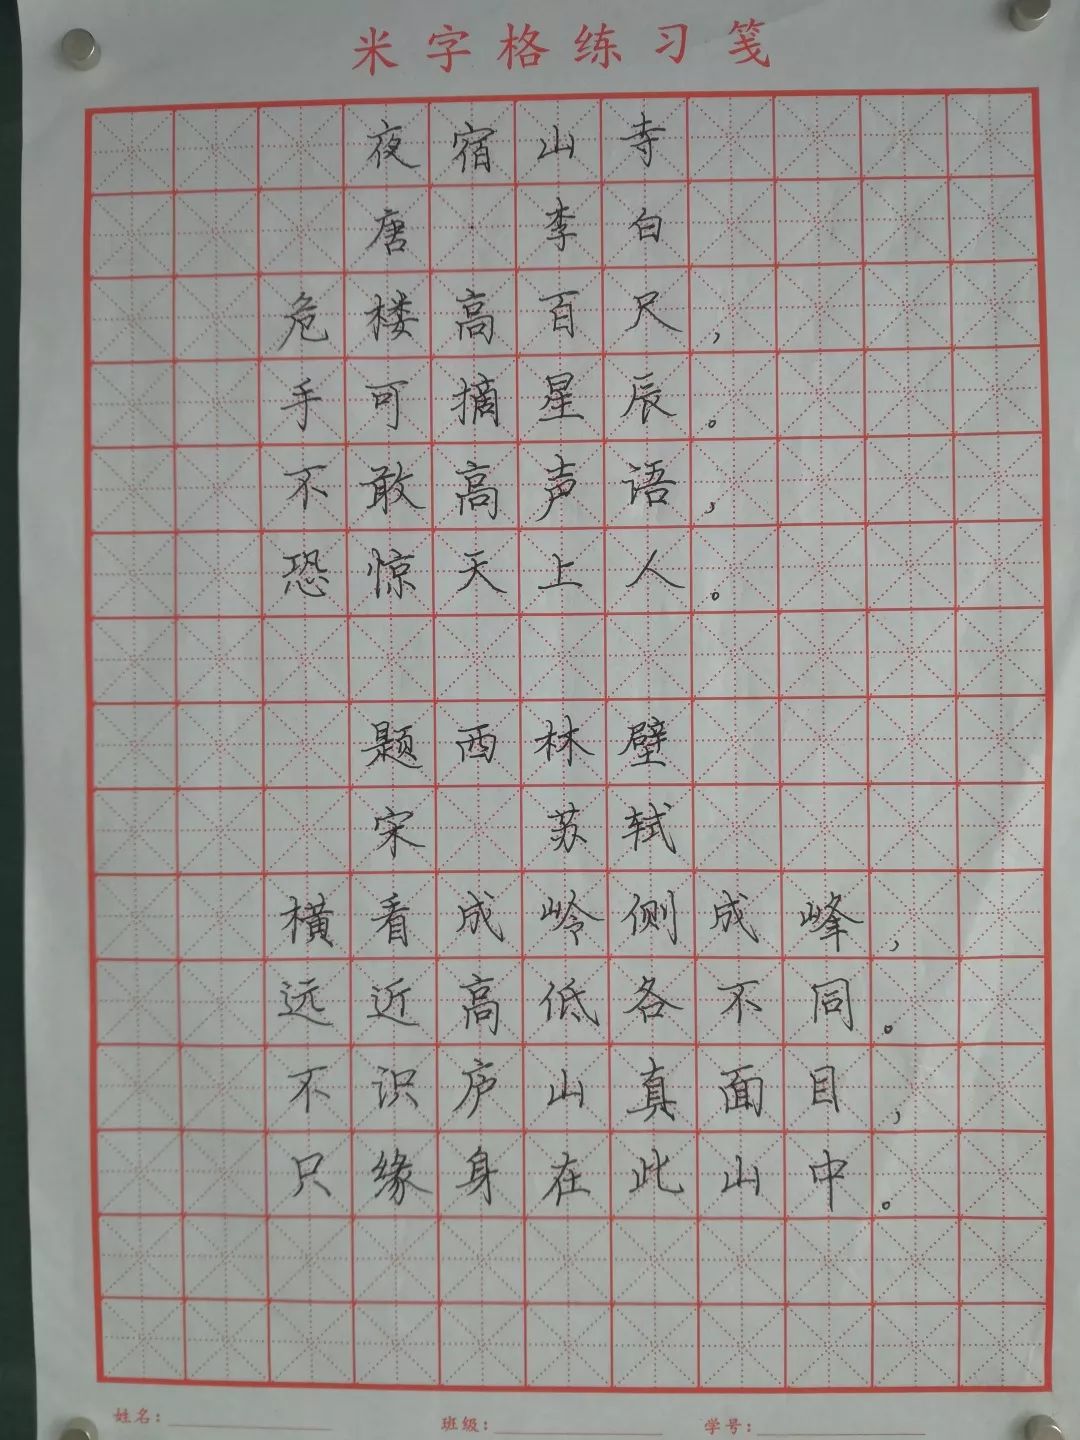 米字格练习笺
夜宿山寺
唐·李白
危楼高百尺，
手可摘星辰。
不敢高声语，
恐惊天上人。
题西林壁
宋 苏轼
横看成岭侧成峰，
远近高低各不同。
不识庐山真面目，
只缘身在此山中。
姓名： 班级： 学号：